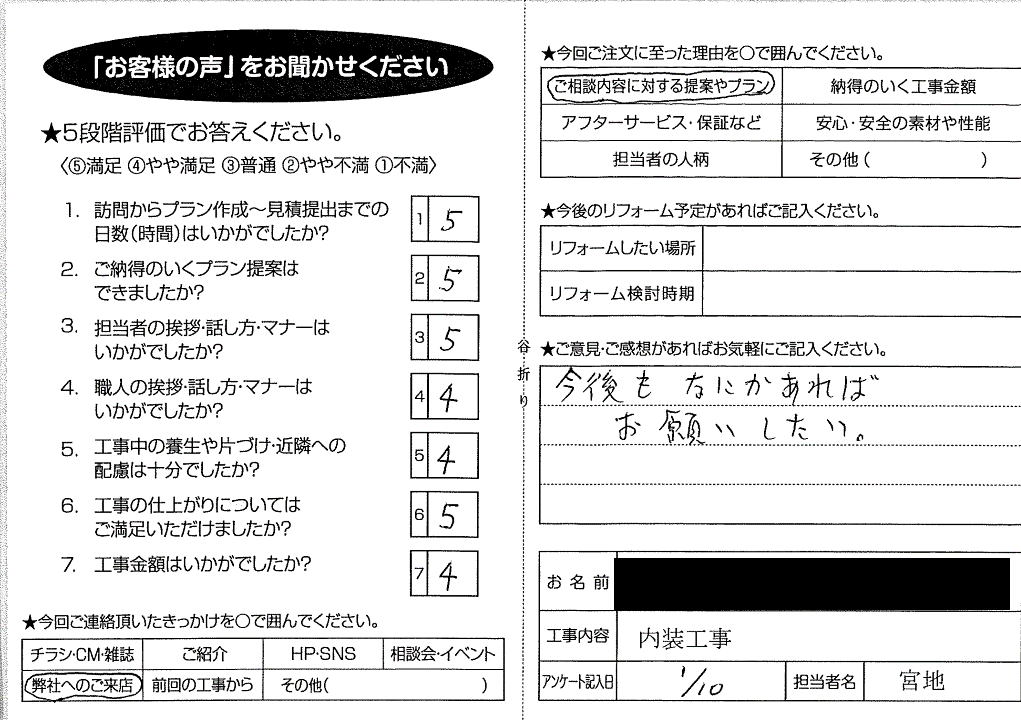 「お客様の声」をお聞かせください
★5段階評価でお答えください。
〈⑤満足 ④やや満足 ③普通 ②やや不満 ①不満〉
1. 訪問からプラン作成～見積提出までの
日数(時間)はいかがでしたか?
1 5
2. ご納得のいくプラン提案は
できましたか?
2 5
3. 担当者の挨拶・話し方・マナーは
いかがでしたか?
3 5
4. 職人の挨拶・話し方・マナーは
いかがでしたか?
4 4
5. 工事中の養生や片づけ・近隣への
配慮は十分でしたか?
5 4
6. 工事の仕上がりについては
ご満足いただけましたか?
6 5
7. 工事金額はいかがでしたか?
7 4
★今回ご連絡頂いたきっかけを〇で囲んでください。
チラシ・CM・雑誌 ご紹介 HP・SNS 相談会・イベント
弊社へのご来店 前回の工事から その他( )
谷折り
★今回ご注文に至った理由を〇で囲んでください。
ご相談内容に対する提案やプラン 納得のいく工事金額
アフターサービス・保証など 安心・安全の素材や性能
担当者の人柄 その他( )
★今後のリフォーム予定があればご記入ください。
リフォームしたい場所
リフォーム検討時期
★ご意見・ご感想があればお気軽にご記入ください。
今後も なにかあれば
お願いしたい。
お名前
工事内容 内装工事
アンケート記入日 1/10 担当者名 宮地